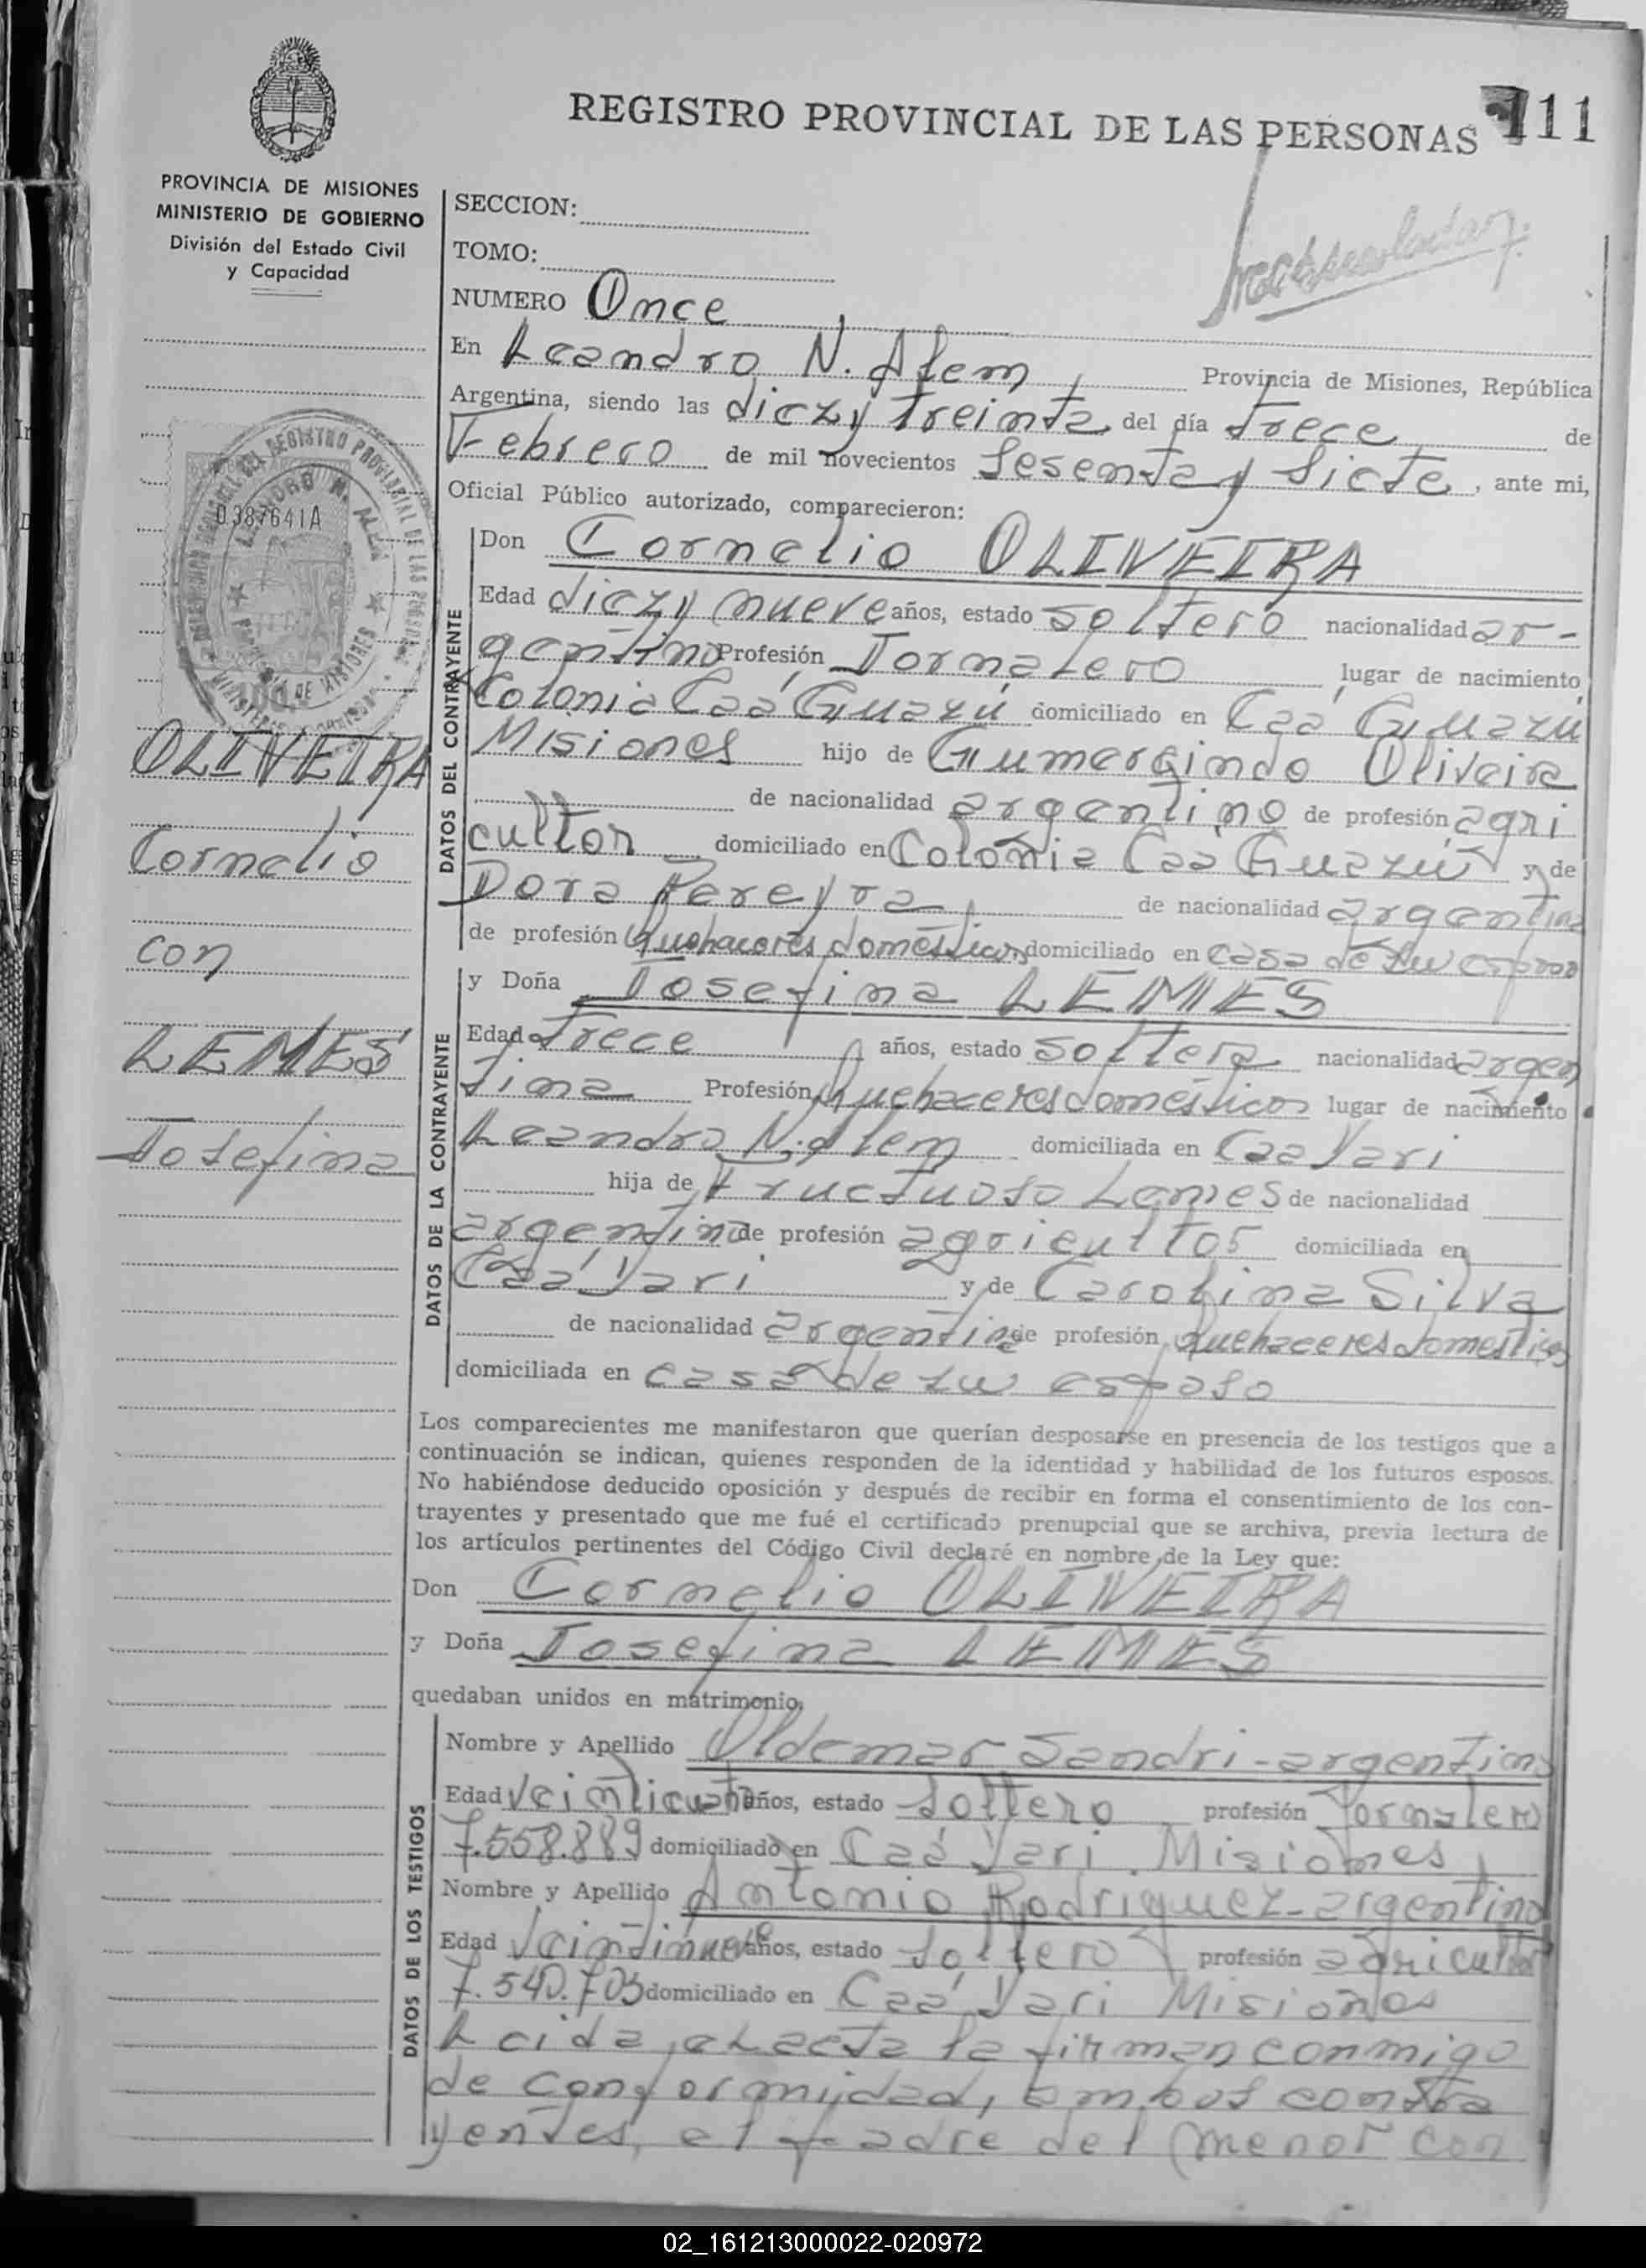 REGISTRO PROVINCIAL DE LAS PERSONAS 111
PROVINCIA DE MISIONES
MINISTERIO DE GOBIERNO
División del Estado Civil
y Capacidad
SECCION:
TOMO:
NUMERO Once
En Leandro N. Alem, Provincia de Misiones, República
Argentina, siendo las diez y treinta del día trece de
Febrero de mil novecientos Sesenta y Siete, ante mi,
Oficial Público autorizado, comparecieron:
0387641A
DATOS DEL CONTRAYENTE
Don Cornelio OLIVEIRA
Edad diez y nueve años, estado soltero nacionalidad ar-
gentino Profesión Jornalero lugar de nacimiento
Colonia Caá Guazú domiciliado en Caá Guazú
Misiones hijo de Gumercindo Oliveira
de nacionalidad argentino de profesión agri
cultor domiciliado en Colonia Caa Guazú y de
Dora Pereyra, de nacionalidad argentina
de profesión Quehaceres domésticos domiciliado en casa de su esposo
OLIVEIRA
Cornelio
con
LEMES
Josefina
DATOS DE LA CONTRAYENTE
y Doña Josefina LEMES
Edad Trece años, estado soltera nacionalidad argen
tina Profesión Quehaceres domésticos lugar de nacimiento
Leandro N. Alem domiciliada en Caa Yari
hija de Fructuoso Lemes de nacionalidad
argentino de profesión agricultor domiciliada en
Caá Yari y de Carolina Silva
de nacionalidad argentina de profesión Quehaceres domesticos
domiciliada en casa de su esposo
Los comparecientes me manifestaron que querían desposarse en presencia de los testigos que a
continuación se indican, quienes responden de la identidad y habilidad de los futuros esposos.
No habiéndose deducido oposición y después de recibir en forma el consentimiento de los con-
trayentes y presentado que me fué el certificado prenupcial que se archiva, previa lectura de
los artículos pertinentes del Código Civil declaré en nombre de la Ley que:
Don Cornelio OLIVEIRA
y Doña Josefina LEMES
quedaban unidos en matrimonio,
DATOS DE LOS TESTIGOS
Nombre y Apellido Oldemar Sandri - argentino
Edad Veinticuatro años, estado Soltero profesión Jornalero
7.558.889 domiciliado en Caá Yari Misiones,
Nombre y Apellido Antonio Rodriguez - argentino
Edad Veintinueve años, estado Soltero profesión agricultor
7.540.703 domiciliado en Caá Yari Misiones
Leida el acta la firman conmigo
de conformidad, ambos contra
yentes, el padre del menor con
02_161213000022-020972